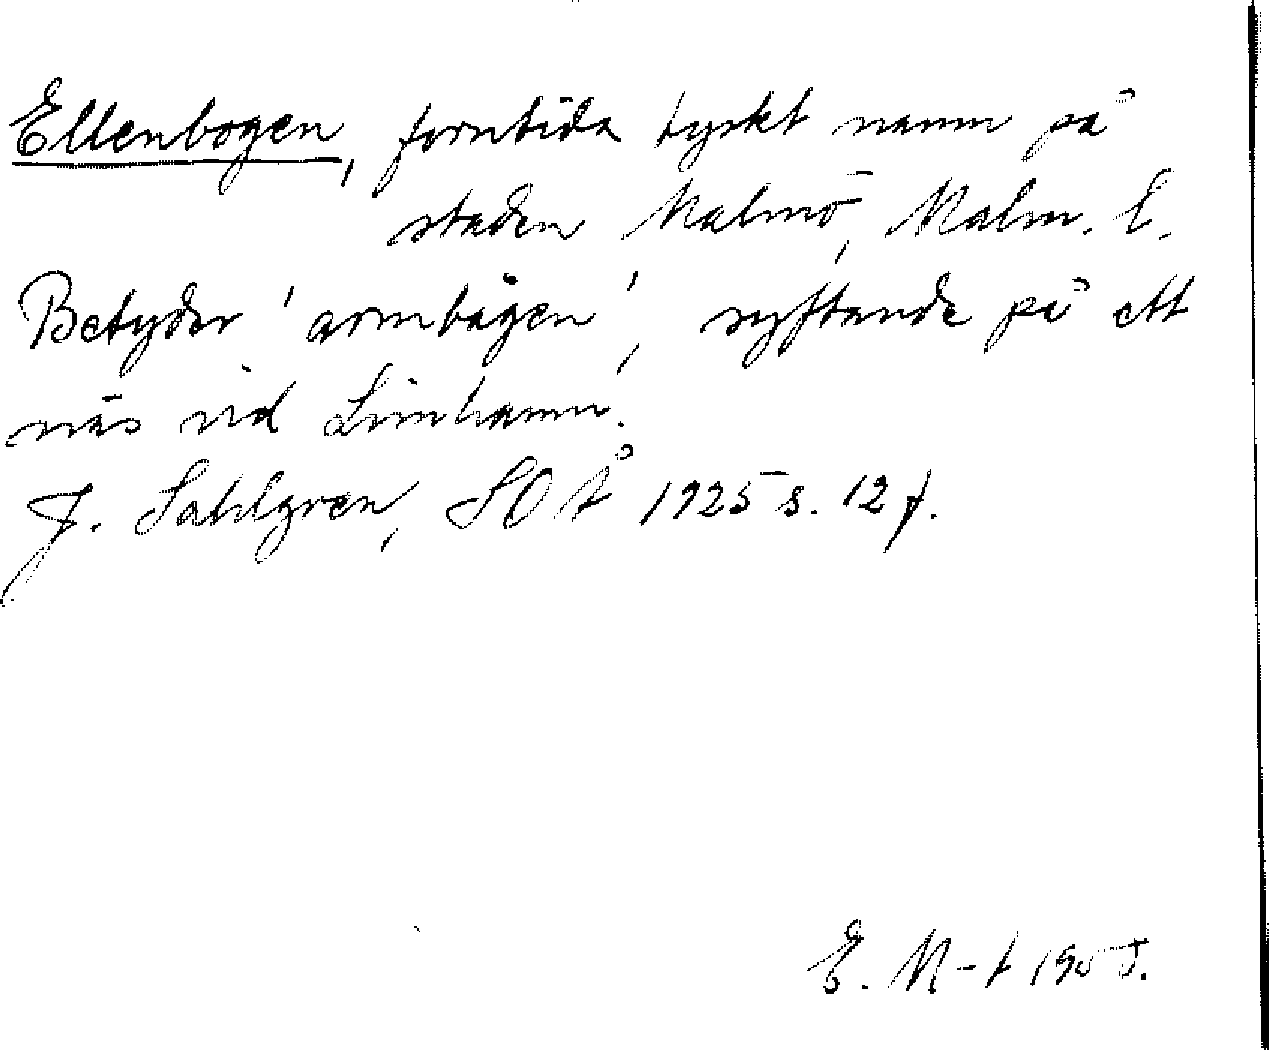 Ellenbogen, forntida tyskt namn på
staden Malmö, Malm. l.
Betyder 'armbågen', syftande på ett
näs vid Limhamn.
J. Sahlgren, SOÅ 1925 s. 12 f.
E. M-t